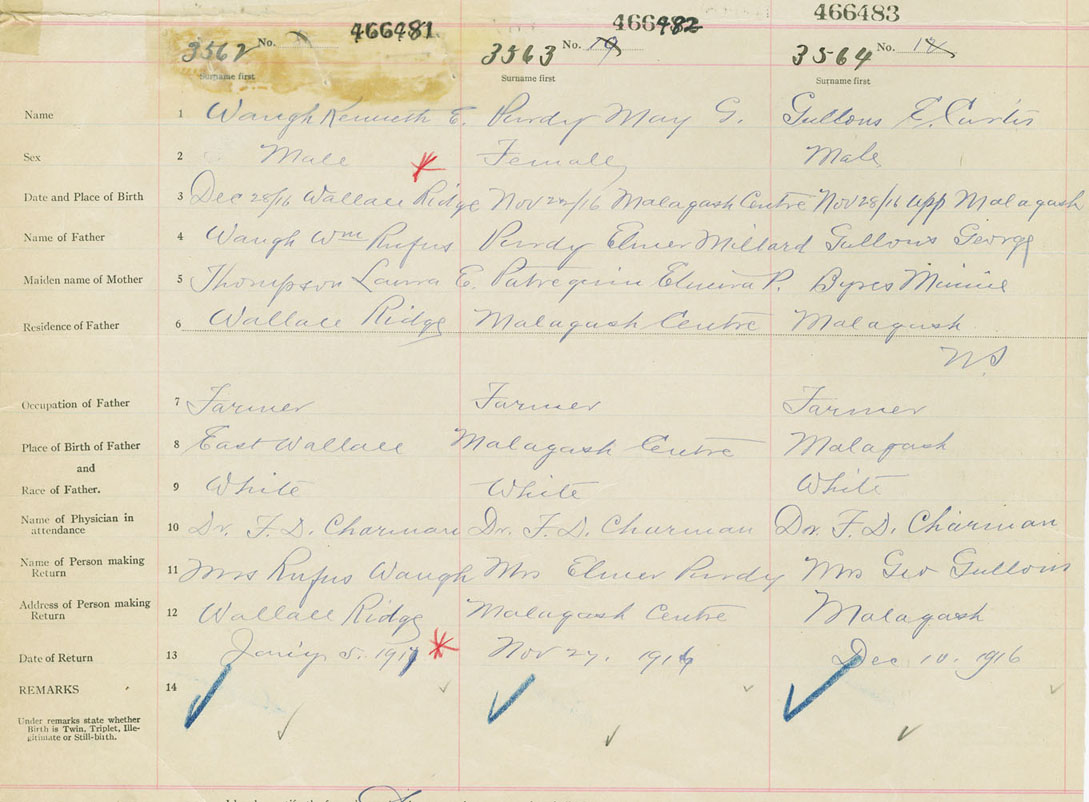 466481 466482 466483
3562 No. 3563 No. 19 3564 No. 12
Surname first Surname first Surname first
Name 1 Waugh Kenneth E. Purdy May G. Gullons E. Curtis
Sex 2 Male Female Male
Date and Place of Birth 3 Dec 28/16 Wallace Ridge Nov 22/16 Malagash Centre Nov 28/16 app Malagash
Name of Father 4 Waugh Wm Rufus Purdy Elmer Millard Gullons George
Maiden name of Mother 5 Thompson Laura E. Patrequin Elmira P. Byres Minnie
Residence of Father 6 Wallace Ridge Malagash Centre Malagash
N.S
Occupation of Father 7 Farmer Farmer Farmer
Place of Birth of Father 8 East Wallace Malagash Centre Malagash
and
Race of Father. 9 White White White
Name of Physician in
attendance 10 Dr. F. D. Charman Dr. F. D. Charman Dr. F. D. Charman
Name of Person making
Return 11 Mrs Rufus Waugh Mrs Elmer Purdy Mrs Geo Gullons
Address of Person making
Return 12 Wallace Ridge Malagash Centre Malagash
Date of Return 13 Jan'y 5. 1917 Nov 27. 1916 Dec 10. 1916
REMARKS 14
Under remarks state whether
Birth is Twin, Triplet, Ille-
gitimate or Still-birth.